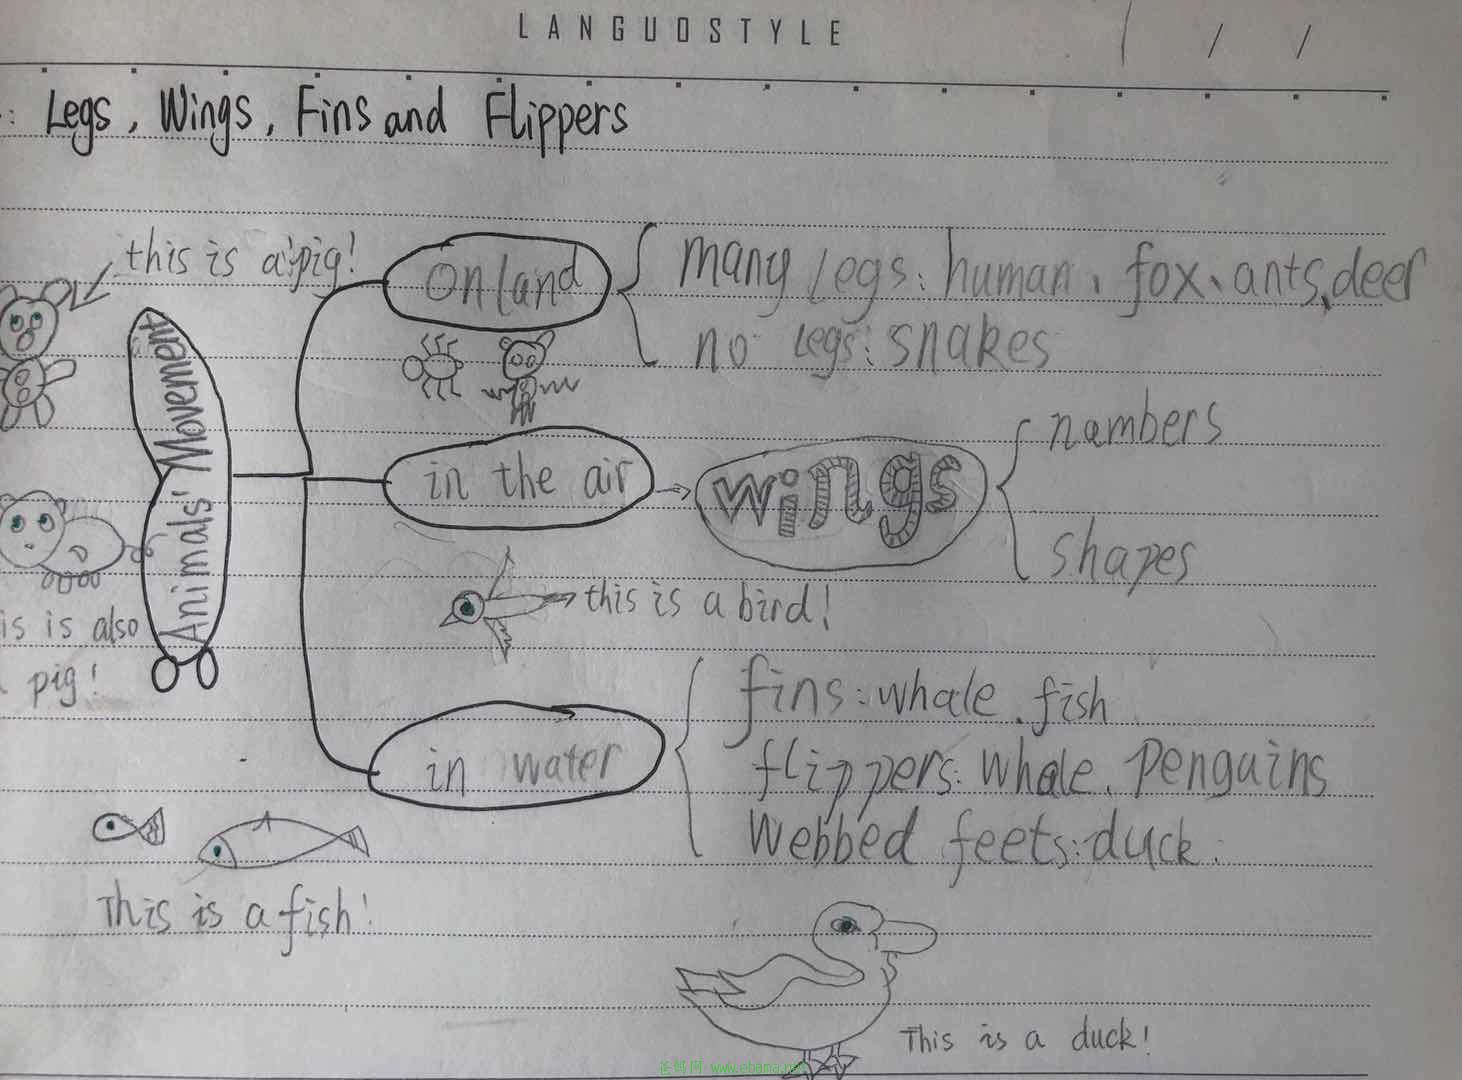 LANGUOSTYLE
: Legs, Wings, Fins and Flippers
this is a pig!
on land
many legs: human、fox、ants、deer
no legs: snakes
Animals' Movement
in the air
wings
nambers
shapes
this is a bird!
is is also
pig!
in water
fins: whale、fish
flippers: whale、Penguains
Webbed feets: duck.
This is a fish!
This is a duck!
www.ebama.net